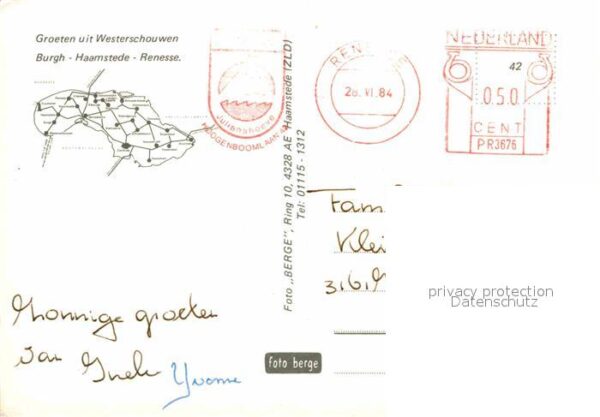 Groeten uit Westerschouwen
Burgh - Haamstede - Renesse.
Julianahoeve
HOOGENBOOMLAAN
RENESSE
28.VI.84
NEDERLAND
42
050
CENT
PR3676
Foto „BERGE”, Ring 10, 4328 AE Haamstede (ZLD)
Tel: 01115 - 1312
Fam
Klei
privacy protection
Datenschutz
Zonnige groeten
van
Yvonne
foto berge